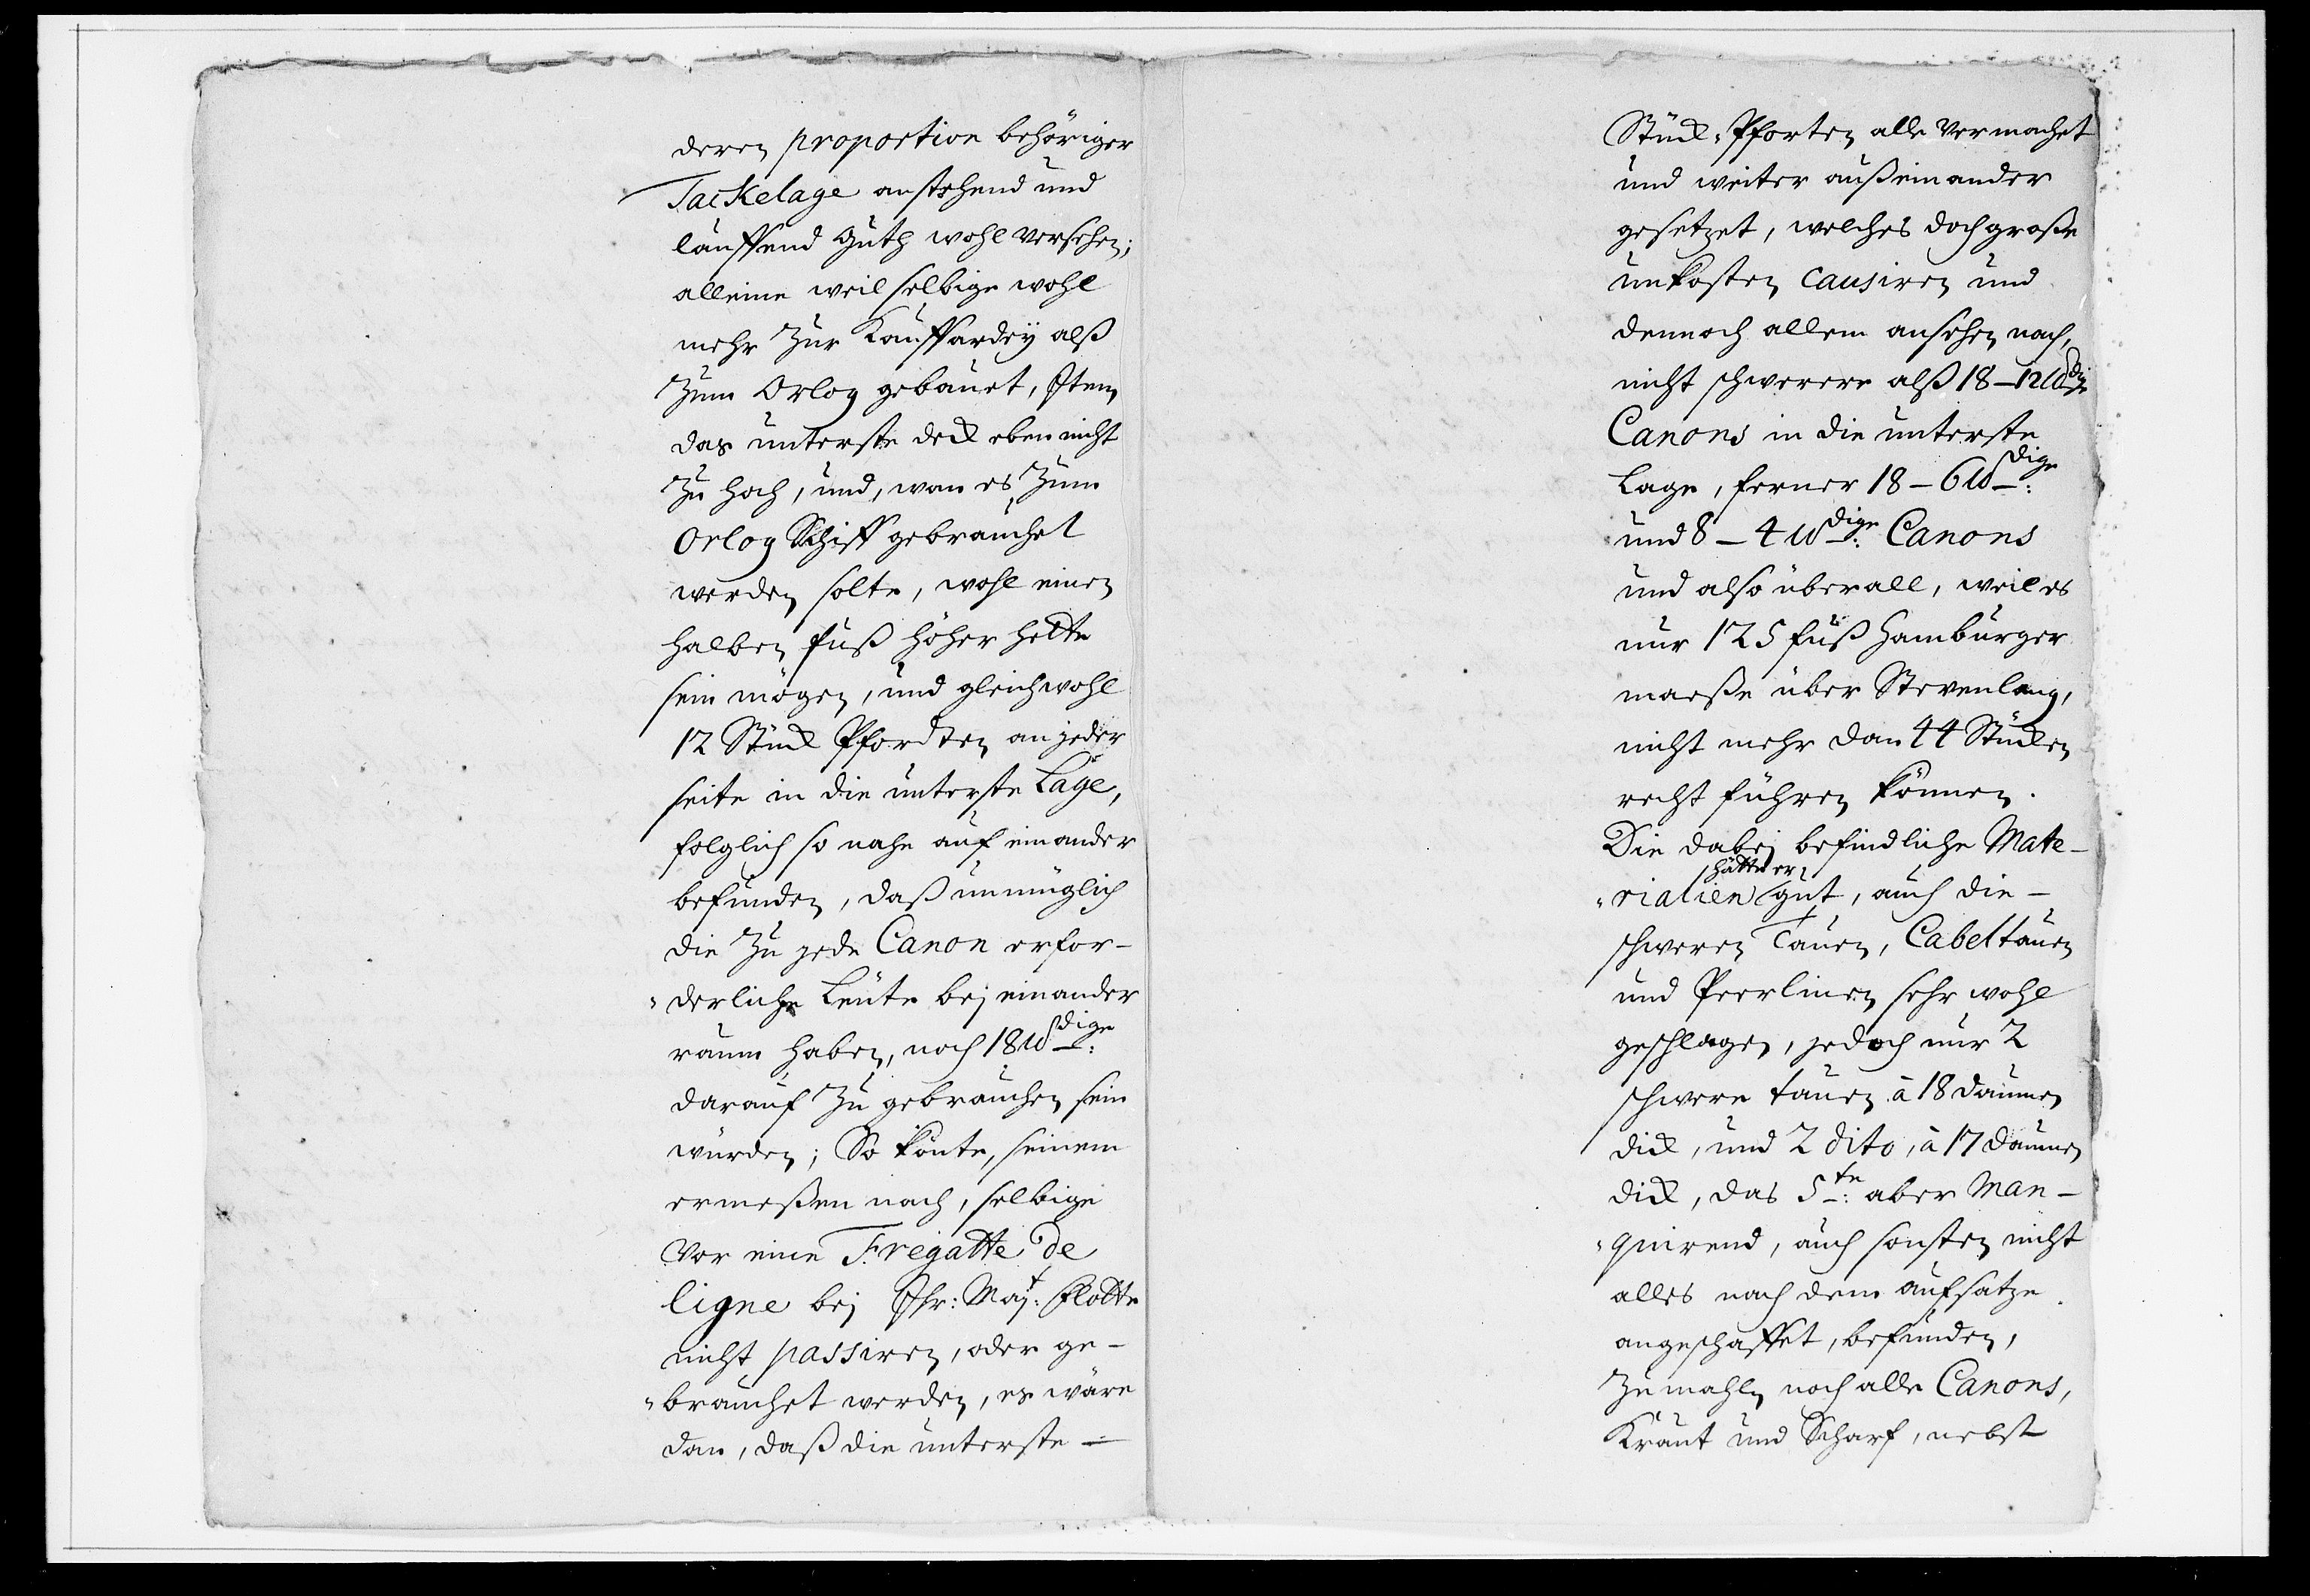 deren proportion behöriger
Tackelage anstehend und
lauffend Guth wohl versehen;
alleine weil selbige wohl
mehr zur Kauffardey alß
zum Orlog gebauet, Item
das unterste deck eben nicht
zu hoch, und, wan es zum
Orlog Schiff gebrauchet
werden solte, wohl einen
halben fuß höher hette
sein mögen, und gleichwohl
12 Stück Pfordten an jeder
seite in die unterste Lage,
folglich so nahe auf einander
befunden, daß unmüglich
die zu jede Canon erfor-
"derliche Leute bej einander
raum haben, noch 18 ℔dige:
darauf zu gebrauchen sein
würden; So könte, seinem
ermeßen nach, selbige
vor eine Fregatte de
ligne bej Ihr: Majt: Flotte
nicht passiren, oder ge-
"brauchet werden, es wäre
dan, daß die unterste -
Stück-Pforten alle vermachet
und weiter außeinander
gesetzet, welches doch große
unkosten causiren und
dennoch allem ansehen nach,
nicht schwerere alß 18 - 12 ℔dige
Canons in die unterste
Lage, ferner 18 - 6 ℔dige:
und 8 - 4 ℔dige: Canons
und also überall, weil es
nur 125 fuß Hamburger
maeße über Steven lang,
nicht mehr dan 44 Stücken
recht führen können.
Die dabej befindliche Mate-
"rialien hätte er gut, auch die -
schweren Tauen, Cabeltauen
und Peerlinen sehr wohl
geschlagen, jedoch nur 2
schwere tauen à 18 daumen
dick, und 2 dito, à 17 daumen
dick, das 5te: aber man-
"quirend, auch sonsten nicht
alles nach dem aufsatze
angeschaffet, befunden,
zumahln noch alle Canons,
Kraut und Scharf, nebst